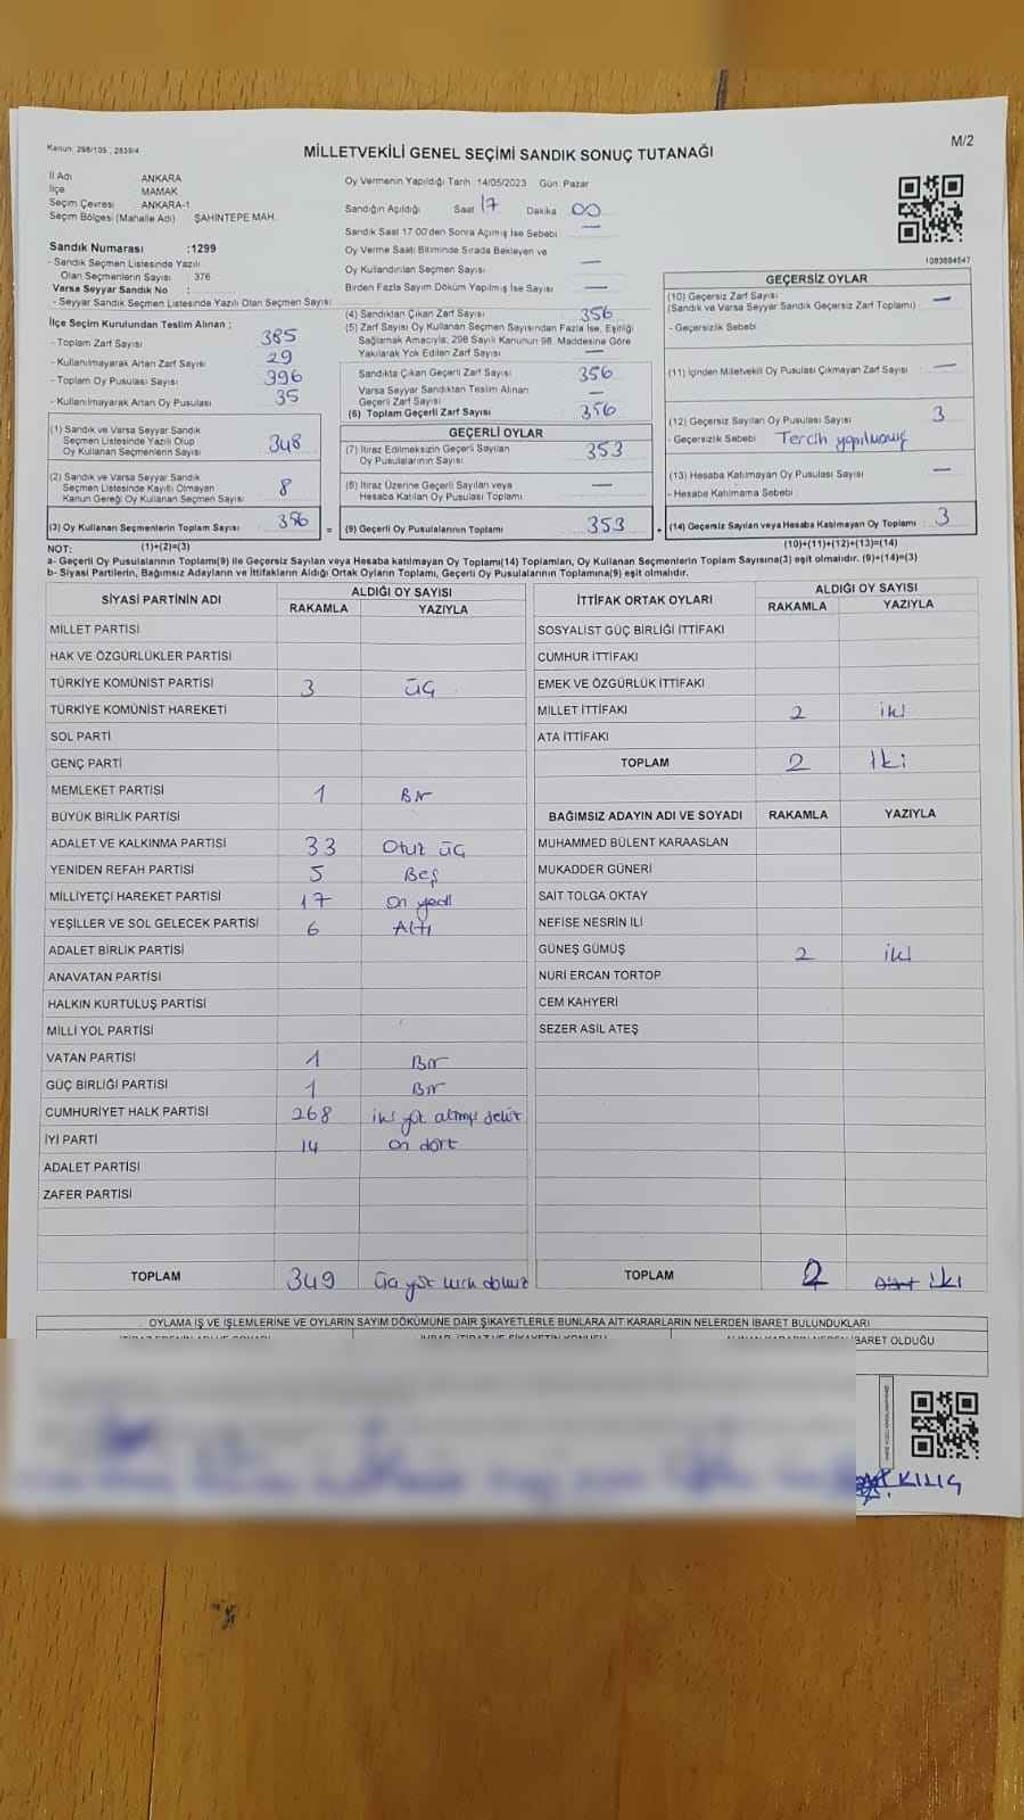 Kanun: 298/105 , 2839/4
M/2
MİLLETVEKİLİ GENEL SEÇİMİ SANDIK SONUÇ TUTANAĞI
İl Adı ANKARA
İlçe MAMAK
Seçim Çevresi ANKARA-1
Seçim Bölgesi (Mahalle Adı) ŞAHİNTEPE MAH.
Sandık Numarası :1299
- Sandık Seçmen Listesinde Yazılı
Olan Seçmenlerin Sayısı 376
Varsa Seyyar Sandık No :
- Seyyar Sandık Seçmen Listesinde Yazılı Olan Seçmen Sayısı:
İlçe Seçim Kurulundan Teslim Alınan :
- Toplam Zarf Sayısı 385
- Kullanılmayarak Artan Zarf Sayısı 29
- Toplam Oy Pusulası Sayısı 396
- Kullanılmayarak Artan Oy Pusulası 35
(1) Sandık ve Varsa Seyyar Sandık
Seçmen Listesinde Yazılı Olup
Oy Kullanan Seçmenlerin Sayısı 348
(2) Sandık ve Varsa Seyyar Sandık
Seçmen Listesinde Kayıtlı Olmayan
Kanun Gereği Oy Kullanan Seçmen Sayısı 8
(3) Oy Kullanan Seçmenlerin Toplam Sayısı 356
Oy Vermenin Yapıldığı Tarih :14/05/2023 Gün: Pazar
Sandığın Açıldığı Saat 17 Dakika 00
Sandık Saat 17:00'den Sonra Açılmış İse Sebebi —
Oy Verme Saati Bitiminde Sırada Bekleyen ve
Oy Kullandırılan Seçmen Sayısı —
Birden Fazla Sayım Döküm Yapılmış İse Sayısı —
(4) Sandıktan Çıkan Zarf Sayısı 356
(5) Zarf Sayısı Oy Kullanan Seçmen Sayısından Fazla İse, Eşitliği
Sağlamak Amacıyla; 298 Sayılı Kanunun 98. Maddesine Göre
Yakılarak Yok Edilen Zarf Sayısı —
Sandıkta Çıkan Geçerli Zarf Sayısı 356
Varsa Seyyar Sandıktan Teslim Alınan
Geçerli Zarf Sayısı —
(6) Toplam Geçerli Zarf Sayısı 356
GEÇERLİ OYLAR
(7) İtiraz Edilmeksizin Geçerli Sayılan
Oy Pusulalarının Sayısı 353
(8) İtiraz Üzerine Geçerli Sayılan veya
Hesaba Katılan Oy Pusulası Toplamı —
= (9) Geçerli Oy Pusulalarının Toplamı 353
1083084547
GEÇERSİZ OYLAR
(10) Geçersiz Zarf Sayısı —
(Sandık ve Varsa Seyyar Sandık Geçersiz Zarf Toplamı)
- Geçersizlik Sebebi
(11) İçinden Milletvekili Oy Pusulası Çıkmayan Zarf Sayısı —
(12) Geçersiz Sayılan Oy Pusulası Sayısı 3
- Geçersizlik Sebebi Tercih yapılmamış
(13) Hesaba Katılmayan Oy Pusulası Sayısı —
- Hesaba Katılmama Sebebi
+ (14) Geçersiz Sayılan veya Hesaba Katılmayan Oy Toplamı 3
NOT: (1)+(2)=(3) (10)+(11)+(12)+(13)=(14)
a- Geçerli Oy Pusulasının Toplamı(9) ile Geçersiz Sayılan veya Hesaba katılmayan Oy Toplamı(14) Toplamları, Oy Kullanan Seçmenlerin Toplam Sayısına(3) eşit olmalıdır. (9)+(14)=(3)
b- Siyasi Partilerin, Bağımsız Adayların ve İttifakların Aldığı Ortak Oyların Toplamı, Geçerli Oy Pusulalarının Toplamına(9) eşit olmalıdır.
SİYASİ PARTİNİN ADI ALDIĞI OY SAYISI
RAKAMLA YAZIYLA
MİLLET PARTİSİ
HAK VE ÖZGÜRLÜKLER PARTİSİ
TÜRKİYE KOMÜNİST PARTİSİ 3 üç
TÜRKİYE KOMÜNİST HAREKETİ
SOL PARTİ
GENÇ PARTİ
MEMLEKET PARTİSİ 1 Bir
BÜYÜK BİRLİK PARTİSİ
ADALET VE KALKINMA PARTİSİ 33 Otuz üç
YENİDEN REFAH PARTİSİ 5 Beş
MİLLİYETÇİ HAREKET PARTİSİ 17 On yedi
YEŞİLLER VE SOL GELECEK PARTİSİ 6 Altı
ADALET BİRLİK PARTİSİ
ANAVATAN PARTİSİ
HALKIN KURTULUŞ PARTİSİ
MİLLİ YOL PARTİSİ
VATAN PARTİSİ 1 Bir
GÜÇ BİRLİĞİ PARTİSİ 1 Bir
CUMHURİYET HALK PARTİSİ 268 iki yüz altmış sekiz
İYİ PARTİ 14 on dört
ADALET PARTİSİ
ZAFER PARTİSİ
TOPLAM 349 üç yüz kırk dokuz
İTTİFAK ORTAK OYLARI ALDIĞI OY SAYISI
RAKAMLA YAZIYLA
SOSYALİST GÜÇ BİRLİĞİ İTTİFAKI
CUMHUR İTTİFAKI
EMEK VE ÖZGÜRLÜK İTTİFAKI
MİLLET İTTİFAKI 2 iki
ATA İTTİFAKI
TOPLAM 2 İki
BAĞIMSIZ ADAYIN ADI VE SOYADI RAKAMLA YAZIYLA
MUHAMMED BÜLENT KARAASLAN
MUKADDER GÜNERİ
SAİT TOLGA OKTAY
NEFİSE NESRİN İLİ
GÜNEŞ GÜMÜŞ 2 iki
NURİ ERCAN TORTOP
CEM KAHYERİ
SEZER ASİL ATEŞ
TOPLAM 2 iki
OYLAMA İŞ VE İŞLEMLERİNE VE OYLARIN SAYIM DÖKÜMÜNE DAİR ŞİKAYETLERLE BUNLARA AİT KARARLARIN NELERDEN İBARET BULUNDUKLARI
İBARET OLDUĞU
KILIÇ